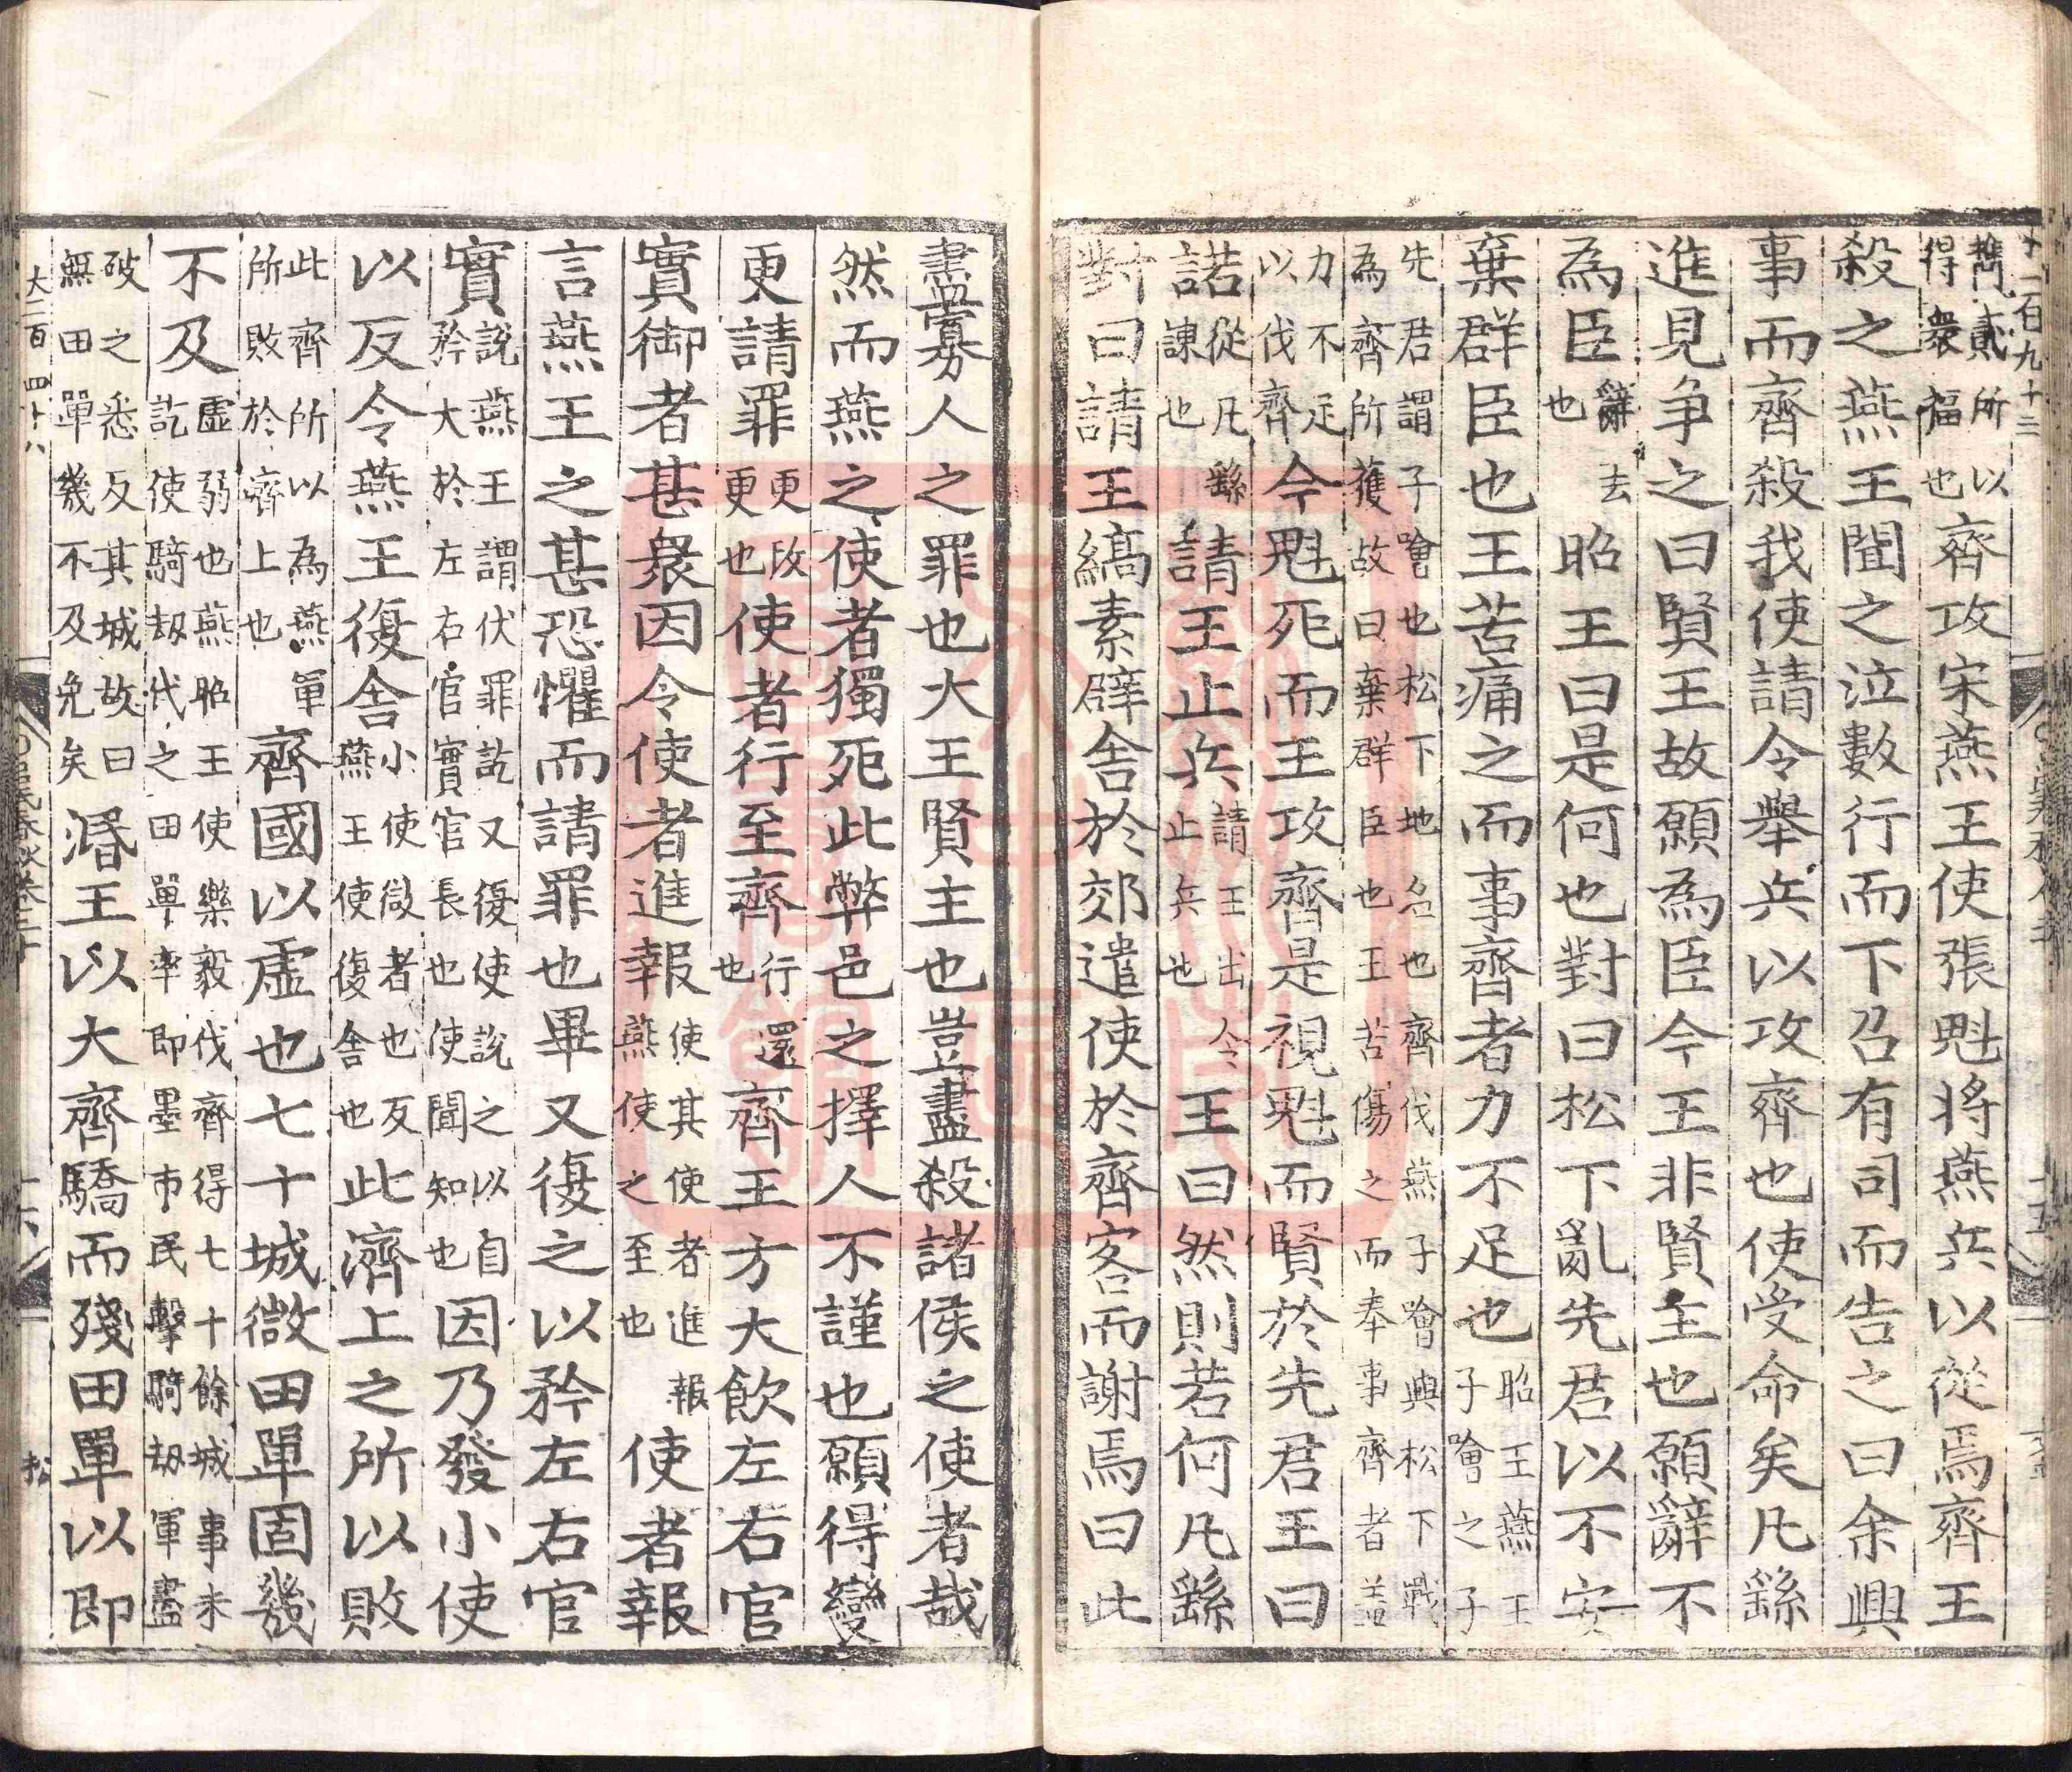 攜貳所以得衆福也齊攻宋燕王使張魁將燕兵以從焉齊王
殺之燕王聞之泣數行而下召有司而告之曰余興
事而齊殺我使請令舉兵以攻齊也使受命矣凡繇
進見争之曰賢王故願為臣今王非賢主也願辭不
為臣辭去也昭王曰是何也對曰松下亂先君以不安
棄群臣也王苦痛之而事齊者力不足也昭王燕王子噲之子
先君謂子噲也松下地名也齊伐燕子噲與松下戰為齊所獲故曰棄群臣也王苦傷之而奉事齊者盖
力不足以伐齊今魁死而王攻齊是視魁而賢於先君王曰
諾從凡繇諌也請王止兵請王出令止兵也王曰然則若何凡繇
對曰請王縞素辟舍於郊遣使於齊客而謝焉曰此
十五
盡寡人之罪也大王賢主也豈盡殺諸侯之使者哉
然而燕之使者獨死此弊邑之擇人不謹也願得變
更請罪更改更也使者行至齊行還也齊王方大飲左右官
實御者甚衆因令使者進報使其使者進報燕使之至也使者報
言燕王之甚恐懼而請罪也畢又復之以矜左右官
實說燕王謂伏罪訖又復使說之以自矜大於左右官實官長也使聞知也因乃發小使
以反令燕王復舍小使微者也反燕王使復舍也此濟上之所以敗
此齊所以為燕軍所敗於齊上也齊國以虛也七十城微田單固幾
不及虛弱也燕昭王使樂毅伐齊得七十餘城事未訖使騎刼代之田單率即墨市民擊騎刼軍盡
破之悉反其城故曰無田單幾不及免矣湣王以大齊驕而殘田單以即
大二百四十八
呂氏春秋卷二十
十六
松